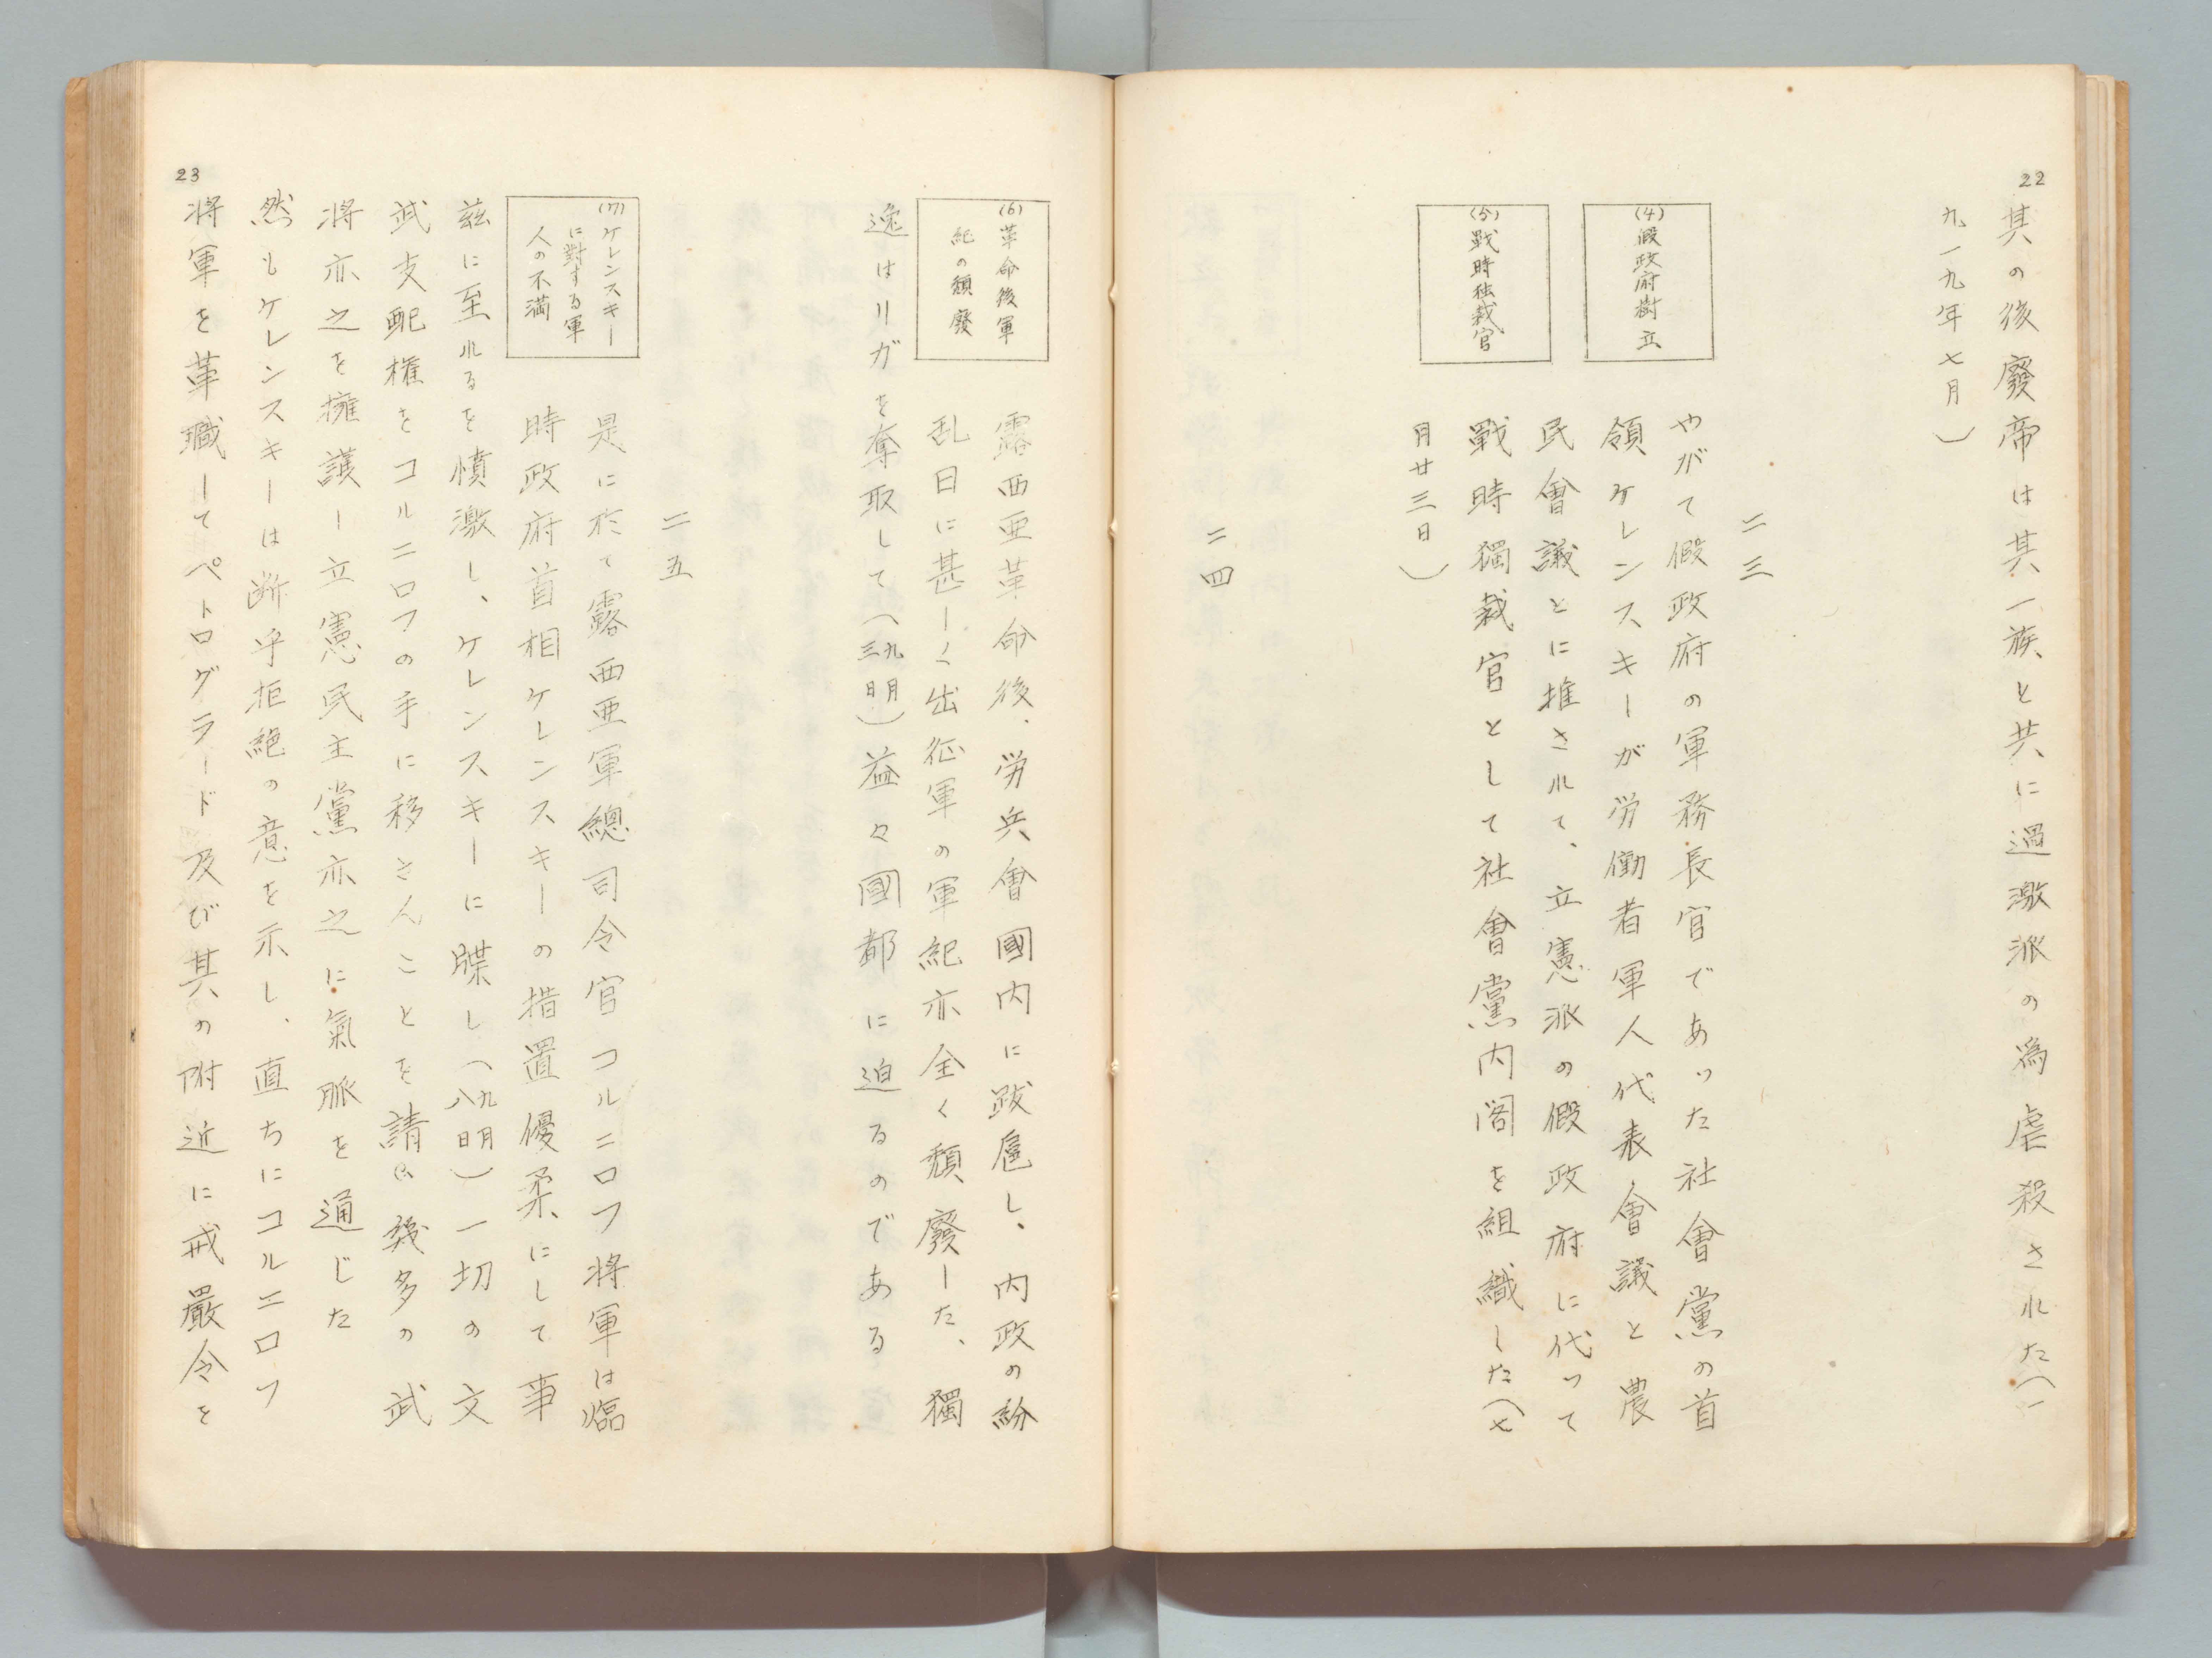 22
其の後廢帝は其一族と共に過激派の為虐殺された(一
九一九年七月)
二三
(4)假政府樹立
やがて假政府の軍務長官であった社會黨の首
領ケレンスキーが労働者軍人代表會議と農
民會議とに推されて、立憲派の假政府に代って
(5)戦時独裁官
戰時獨裁官として社會黨内閣を組織した(七
月廿三日)
二四
(6)革命後軍
紀の頽廢
露西亜革命後、労兵會國内に跋扈し、内政の紛
乱日に甚しく出征軍の軍紀亦全く頽廢した、獨
逸はリガを奪取して(九月三日)益々國都に迫るのである
二五
(7)ケレンスキー
に對する軍
人の不満
是に於て露西亜軍總司令官コルニロフ将軍は臨
時政府首相ケレンスキーの措置優柔にして事
茲に至れるを憤激し、ケレンスキーに牒し(九月八日)一切の文
武支配権をコルニロフの手に移さんことを請ひ幾多の武
将亦之を擁護し立憲民主黨亦之に氣脈を通じた
然もケレンスキーは断乎拒絶の意を示し、直ちにコルニロフ
将軍を革職してペトログラード及び其の附近に戒嚴令を
23